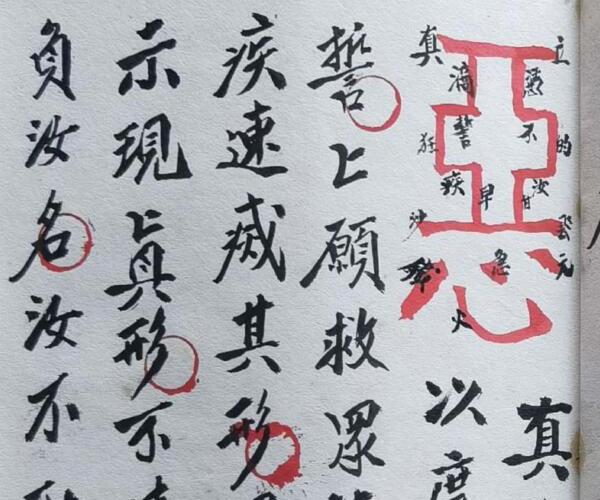 真
以度
誓上願救眾
疾速滅其形
示現上真形不
負汝名汝不
惡
真
立
憑
滴
誓
不
的
疾
早
汝
甘
沙
急
元
火